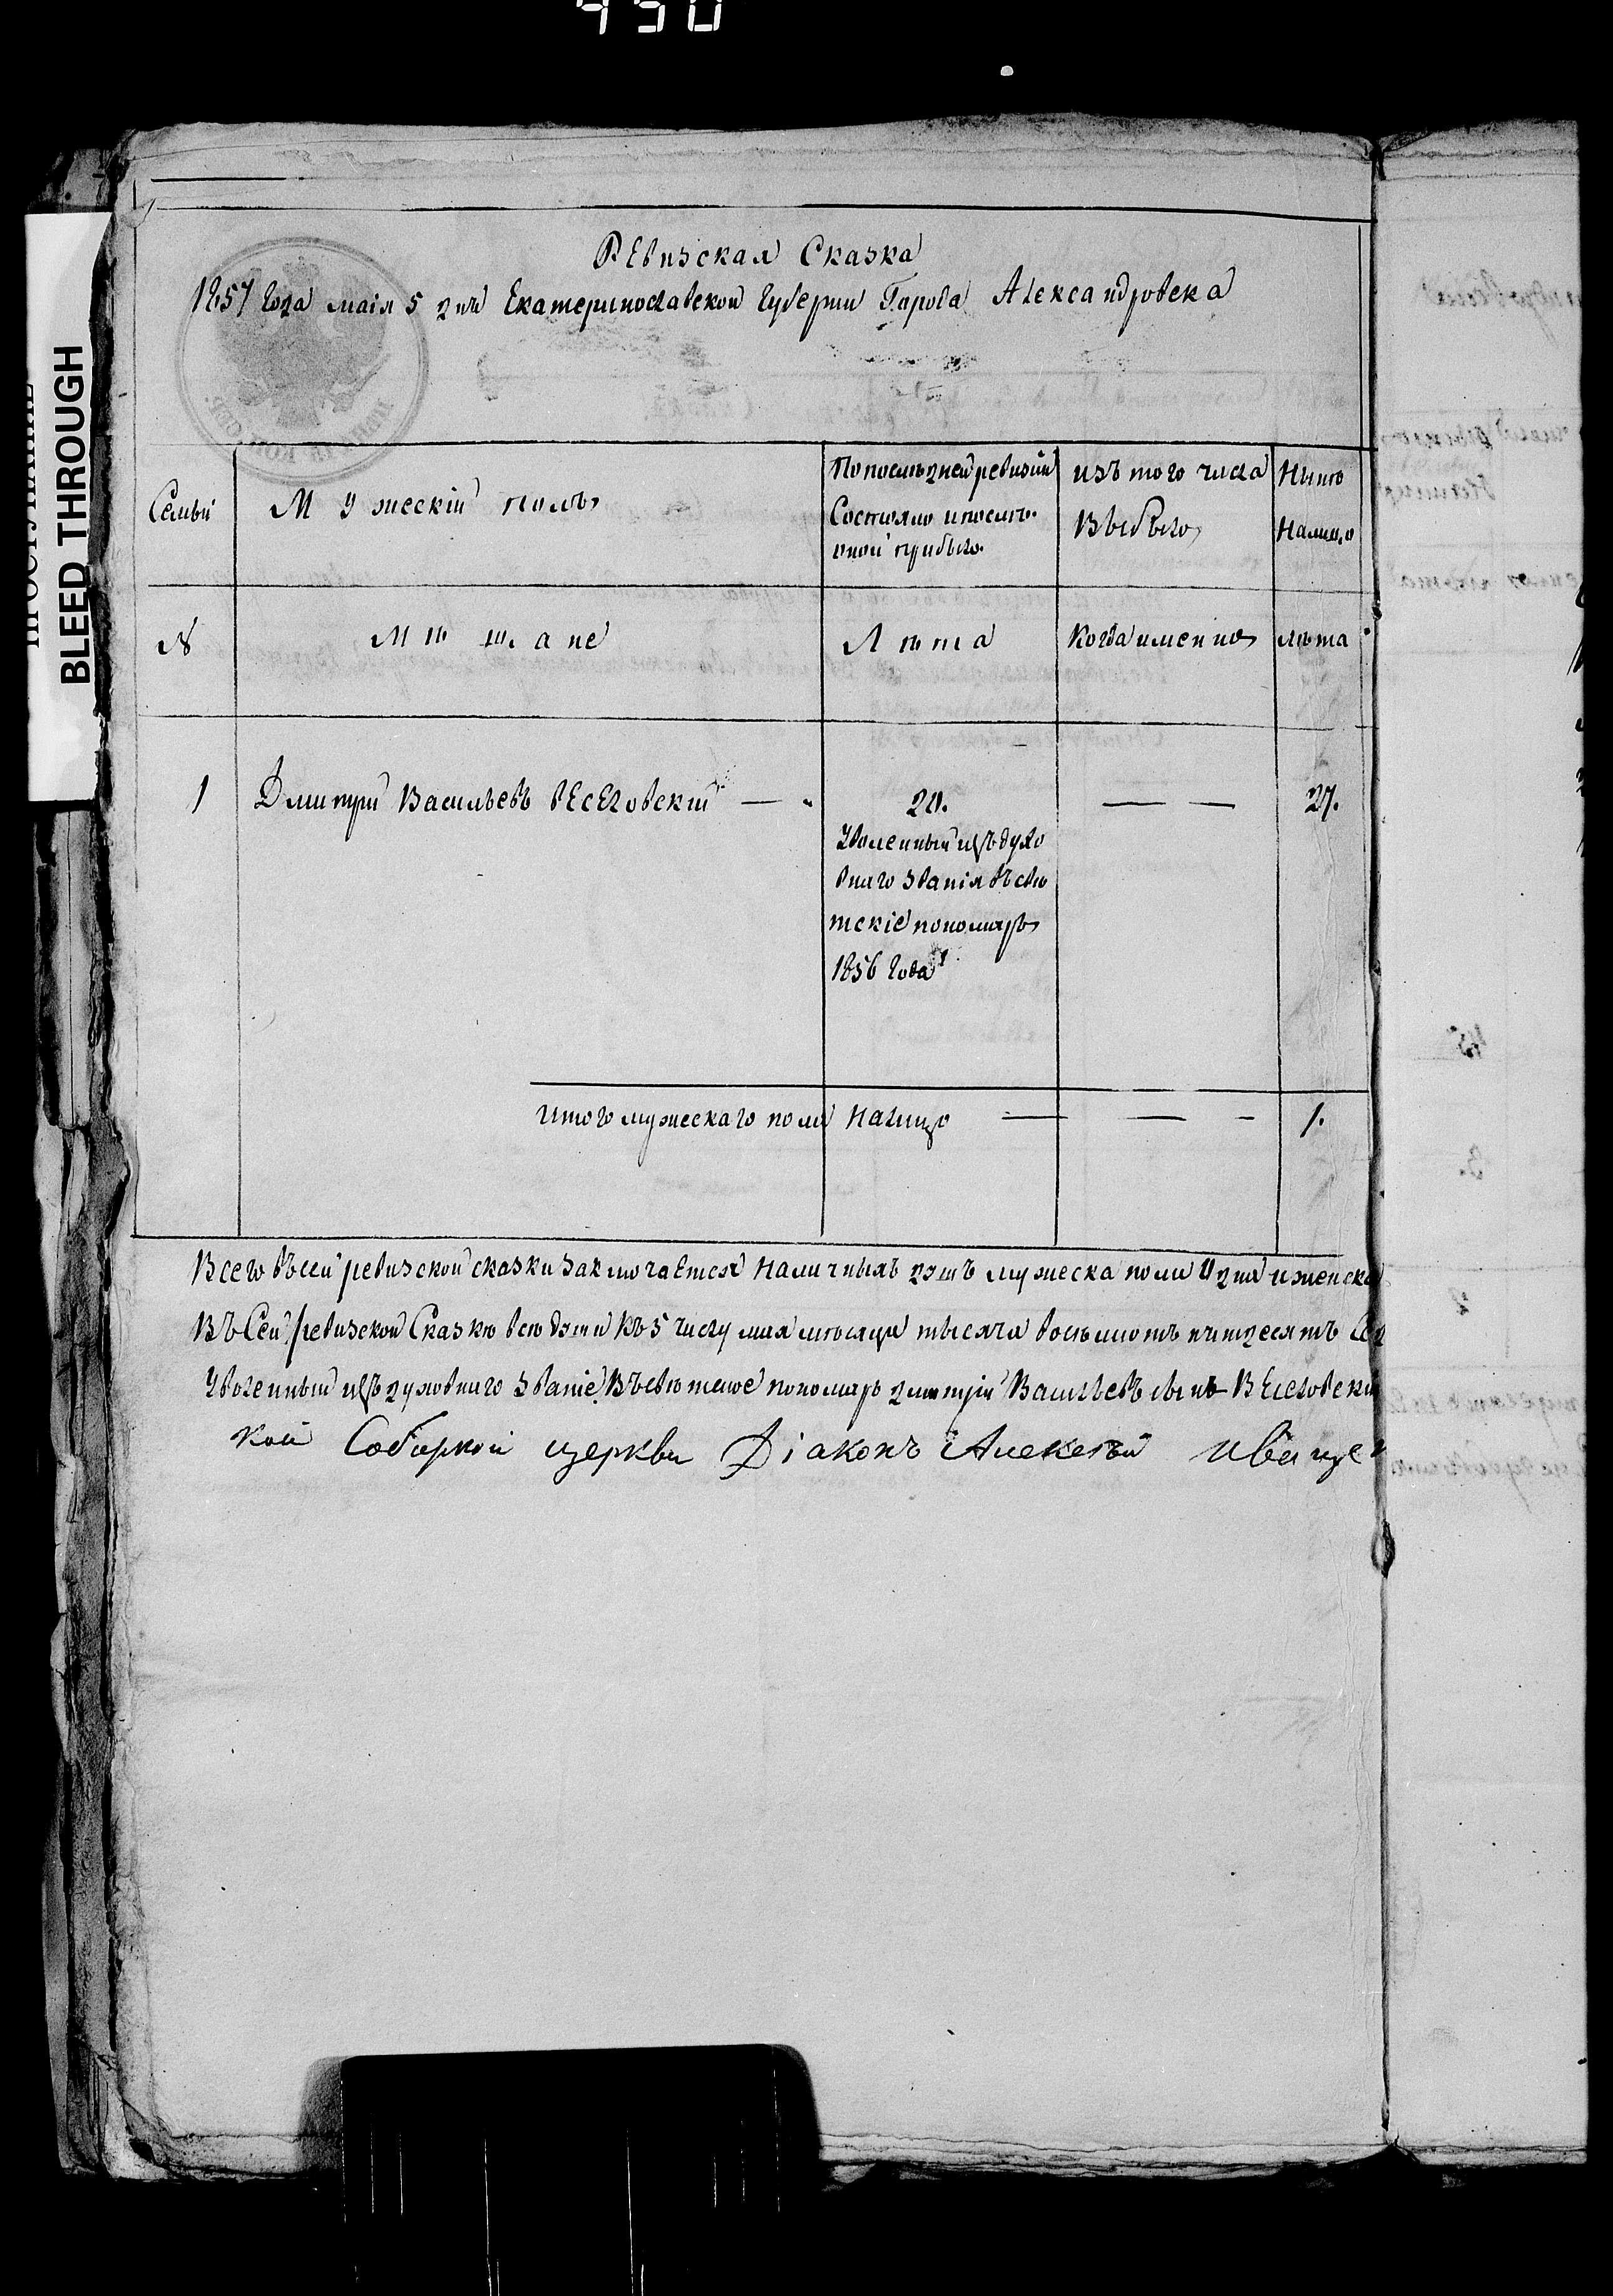 430
ПРОСТУПАНИЕ
BLEED THROUGH
Ревизская Сказка
1857 года маія 5 дня Екатеринославской Губерни Гарода Александровска
Семьи
Мужескій полъ
По последней ревизіи
Состояло и после
оной прибыло
изъ того числа
Выбыло
Ныне
Налицо
№
Мѣщане
Лѣта
Когда именно
лѣта
1
Дмитрій Васильевъ Веселовскій
20.
Уволенный изъ духо
внаго званія въ свѣ
тскіе пономарь
1856 года
27.
Итого мужескаго пола Налицо
1.
Всего въ сей ревизской сказки заключается Наличныхъ душъ мужеска пола Одна и женска
Въ Сей ревизской Сказке все души Къ 5 числу мая месяца тысяча восьмиотъ пятдесятъ
Уволенный изъ духовнаго званіе Въ светское пономарь дмитрій Васильевъ сынъ Веселовскій
кой Соборной церкви Діаконъ Алексѣй